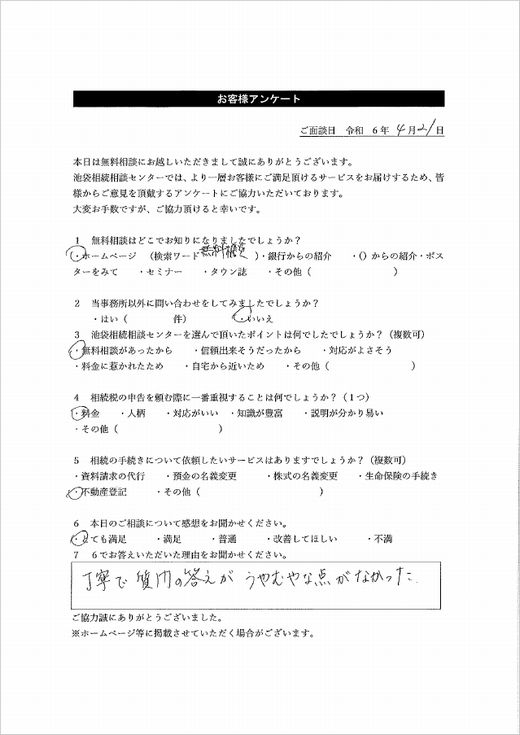 お客様アンケート
ご面談日 令和 6年 4月21日
本日は無料相談にお越しいただきまして誠にありがとうございます。
池袋相続相談センターでは、より一層お客様にご満足頂けるサービスをお届けするため、皆
様からご意見を頂戴するアンケートにご協力いただいております。
大変お手数ですが、ご協力頂けると幸いです。
1 無料相談はどこでお知りになりましたでしょうか?
・ホームページ (検索ワード 無料 )・銀行からの紹介 ・()からの紹介・ポス
ターをみて ・セミナー ・タウン誌 ・その他( )
2 当事務所以外に問い合わせをしてみましたでしょうか?
・はい( 件) ・いいえ
3 池袋相続相談センターを選んで頂いたポイントは何でしたでしょうか?(複数可)
・無料相談があったから ・信頼出来そうだったから ・対応がよさそう
・料金に惹かれたため ・自宅から近いため ・その他( )
4 相続税の申告を頼む際に一番重視することは何でしょうか?(1つ)
・料金 ・人柄 ・対応がいい ・知識が豊富 ・説明が分かり易い
・その他( )
5 相続の手続きについて依頼したいサービスはありますでしょうか?(複数可)
・資料請求の代行 ・預金の名義変更 ・株式の名義変更 ・生命保険の手続き
・不動産登記 ・その他( )
6 本日のご相談について感想をお聞かせください。
・とても満足 ・満足 ・普通 ・改善してほしい ・不満
7 6でお答えいただいた理由をお聞かせください。
丁寧で質問の答えがうやむやな点がなかった.
ご協力誠にありがとうございました。
※ホームページ等に掲載させていただく場合がございます。